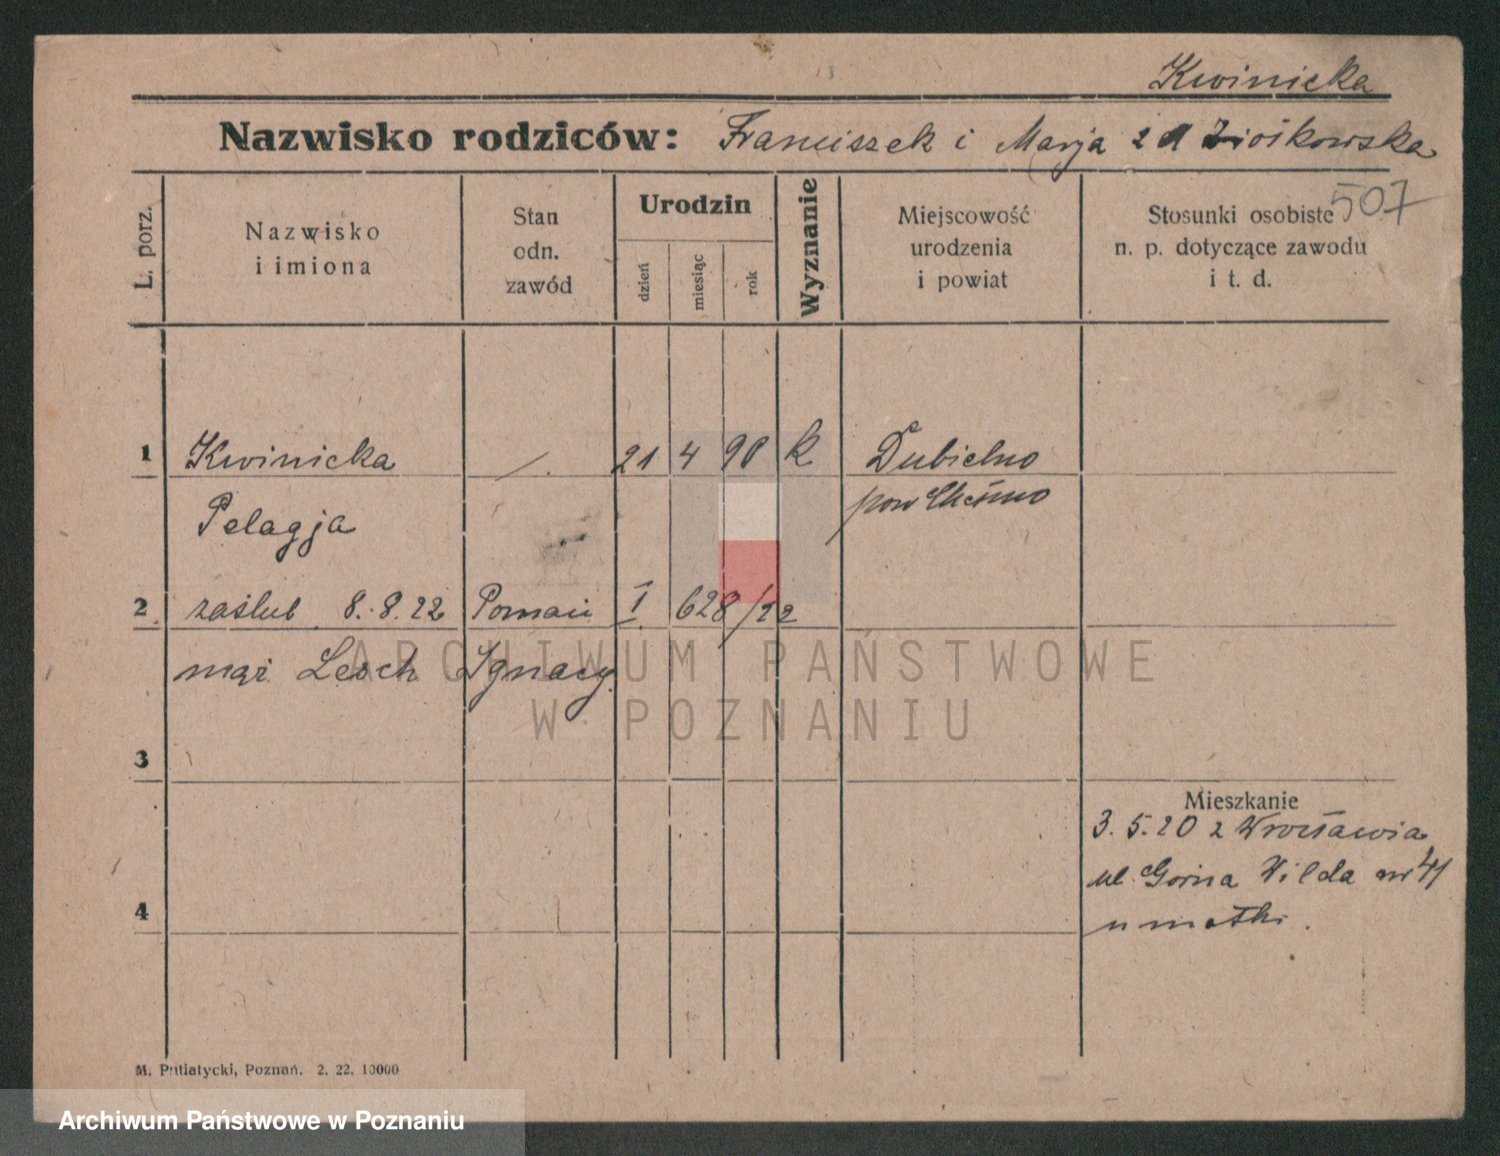 Kwinicka
Nazwisko rodziców: Franciszek i Marja z d Ziołkowska
507
L. porz.
Nazwisko
i imiona
Stan
odn.
zawód
Urodzin
dzień
miesiąc
rok
Wyznanie
Miejscowość
urodzenia
i powiat
Stosunki osobiste
n. p. dotyczące zawodu
i t. d.
1 Kwinicka 21 4 90 k Dubielno
Pelagja pow Chełmno
2 zaślub 8.8.22 Poznań I 628/22
mąż Lesch Ignacy
ARCHIWUM PAŃSTWOWE
W POZNANIU
3
Mieszkanie
3.5.20 z Wrocławia
ul. Gorna Wilda nr 41
4 u matki.
M. Putiatycki, Poznań. 2. 22. 10000
Archiwum Państwowe w Poznaniu